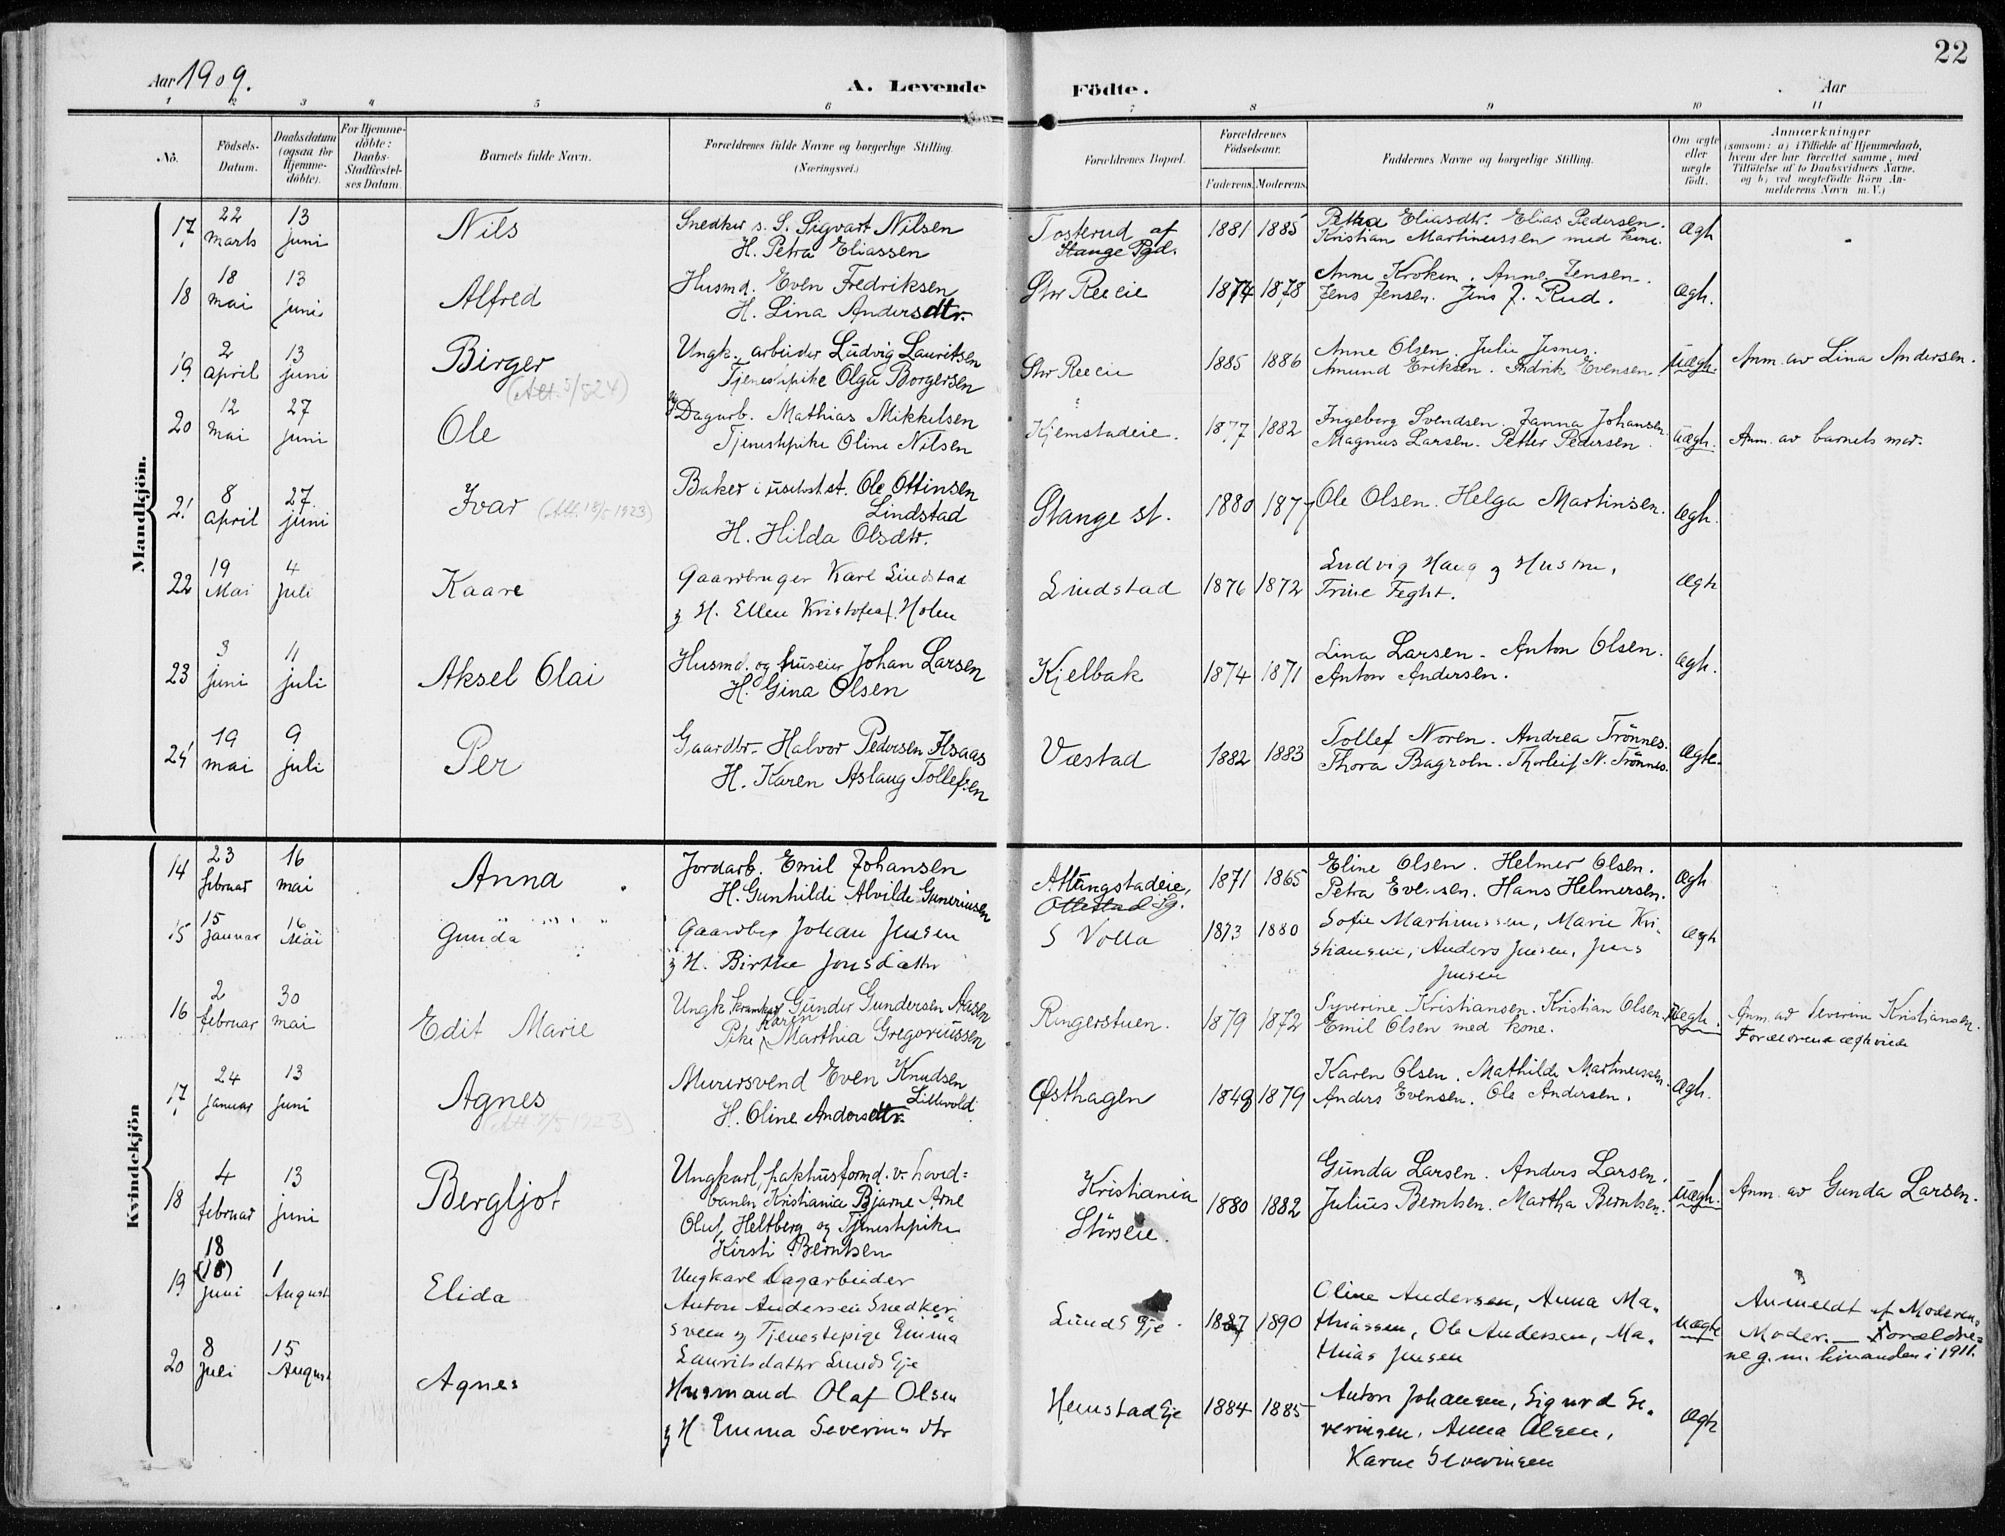 22
Aar 1909.
A. Levende
Födte.
Aar
1 2 3 4 5 6 7 8 9 10 11
No.
Födsels-
Datum.
Daabsdatum
(ogsaa for
Hjemme-
döbte).
For Hjemme-
döbte:
Daabs-
Stadfæstel-
ses Datum.
Barnets fulde Navn.
Forældrenes fulde Navne og borgerlige Stilling.
(Næringsvei.)
Forældrenes Bopæl.
Forældrenes
Födselsaar.
Faderens. Moderens.
Faddernes Navne og borgerlige Stilling.
Om ægte
eller
uægte
födt.
Anmærkninger
(saasom: a) i Tilfælde af Hjemmedaab,
hvem der har forrettet samme, med
Tilföielse af to Daabsvidners Navne.
og b) ved uægtefödte Börn An-
melderens Navn m. V.)
Mandkjön.
17. 22 marts 13 juni Nils
Snedker s. S. Sigvart Nilsen
H. Petra Eliassen
Tosterud af
Stange Pgd.
1881 1885
Petra Eliasdtr. Elias Pedersen.
Kristian Martinussen med kone.
Ægh
18 18 mai 13 juni Alfred
Husmd. Even Fredriksen
H. Lina Andersdtr.
Str Ree eie
1874 1878
Anne Kroken. Anne Jensen.
Jens Jensen. Jens J. Rud.
Ægh.
19 2 april 13 juni Birger
Ungk. arbeider Ludvig Lauritsen
Tjenestpike Olga Borgersen
Str Ree eie
1885 1886
Anne Olsen. Julie Jesnes.
Amund Eriksen. Fredrik Evensen.
Uægh.
Anm. av Lina Andersen.
20 12 mai 27 juni Ole
Dagarb. Mathias Mikkelsen
Tjenestpike Oline Nilsen
Kjemstadeie.
1877 1882
Ingeborg Svendsen. Janna Johansen.
Magnus Larsen. Petter Pedersen.
Uægh.
Anm. av barnets mor.
21 8 april 27 juni Ivar (Att. 18/5 1923)
Baker i Ole Ottinsen
Lindstad
H. Hilda Olsdtr.
Stange st.
1880 1877
Ole Olsen. Helga Martinsen.
Ægh.
22 19 Mai 4 Juli Kaare
Gaardbruger Karl Lindstad
og H. Ellen Holen
Lindstad
1876 1872
Ludvig Haug og Hustru,
Trine Feght.
Ægh
23 3 juni 11 juli Aksel Olai
Husmd. og huseier Johan Larsen
H. Gina Olsen
Kjelbak
1874 1871
Lina Larsen. Anton Olsen.
Anton Andersen.
Ægh.
24 19 mai 9 juli Per
Gaardbr. Halvor Pedersen Hsaas
H. Karen Aslaug Tollefsen
Væstad
1882 1883
Tollef Noren. Andrea Trönnes.
Thora Bagroen. Thorleif N. Trönnes.
Ægte.
Kvindekjön
14 23 februar 16 mai Anna
Jordarb. Emil Johansen
H. Gunhilde Alvilde Gunerinsen
Attungstadeie,
Ottestad Sg.
1871 1865
Eline Olsen. Helmer Olsen.
Petra Evensen. Hans Helmersen.
Ægh
15 15 Januar 16 Mai Gunda
Gaardbr Johan Jensen
og H. Birthe Jonsdatter
S Volla
1873 1880
Sofie Martinussen, Marie Kri-
stiansen, Anders Jensen, Jens
Jensen
Ægh
16 2 februar 30 mai Edit Marie
Ungk. Gunder Gundersen Aasen
Karen
Pike Marthia Gregoriussen
Ringerstuen.
1879 1872
Syverine Kristiansen. Kristian Olsen.
Emil Olsen med kone.
Uægh.
Anm. av Severine Kristiansen.
17. 24 januar 13 juni Agnes
Murersvend Even Knudsen
Lillevold
H. Oline Andersdtr.
Østhagen
1848 1879
Karen Olsen. Mathilde Martinussen.
Anders Evensen. Ole Andersen.
Ægh.
18 4 februar 13 juni Bergljot
Ungkarl, pakhusformd. v. hoved-
banen Kristiania Bjarne Arne
Oluf Heltberg og Tjenestpike
Kirsti Berntsen
Kristiania
Störseie.
1880 1882
Gunda Larsen. Anders Larsen.
Julius Berntsen. Martha Berntsen.
Uægh.
Anm. av Gunda Larsen.
19 18 (18) Juni 1 August Elida
Ungkarl Dagarbeider
Anton Andersen Snedker-
sveen og Tjenestepige Emma
Lauritsdatter Lunds Eje
Lunds Eje.
1887 1890
Oline Andersen, Anna Ma-
thiassen, Ole Andersen, Ma-
thias Jensen
Uægte
Anmeldt af Moderens
Moder. — Forældre-
ne g. m. hinanden i 1911.
20 8 Juli 15 August Agnes
Husmand Olaf Olsen
og H Emma Severinsdtr
Hemstad Eje
1884 1885
Anton Johansen, Sigurd Se-
verinsen, Anna Olsen,
Karen Severinsen
Ægh